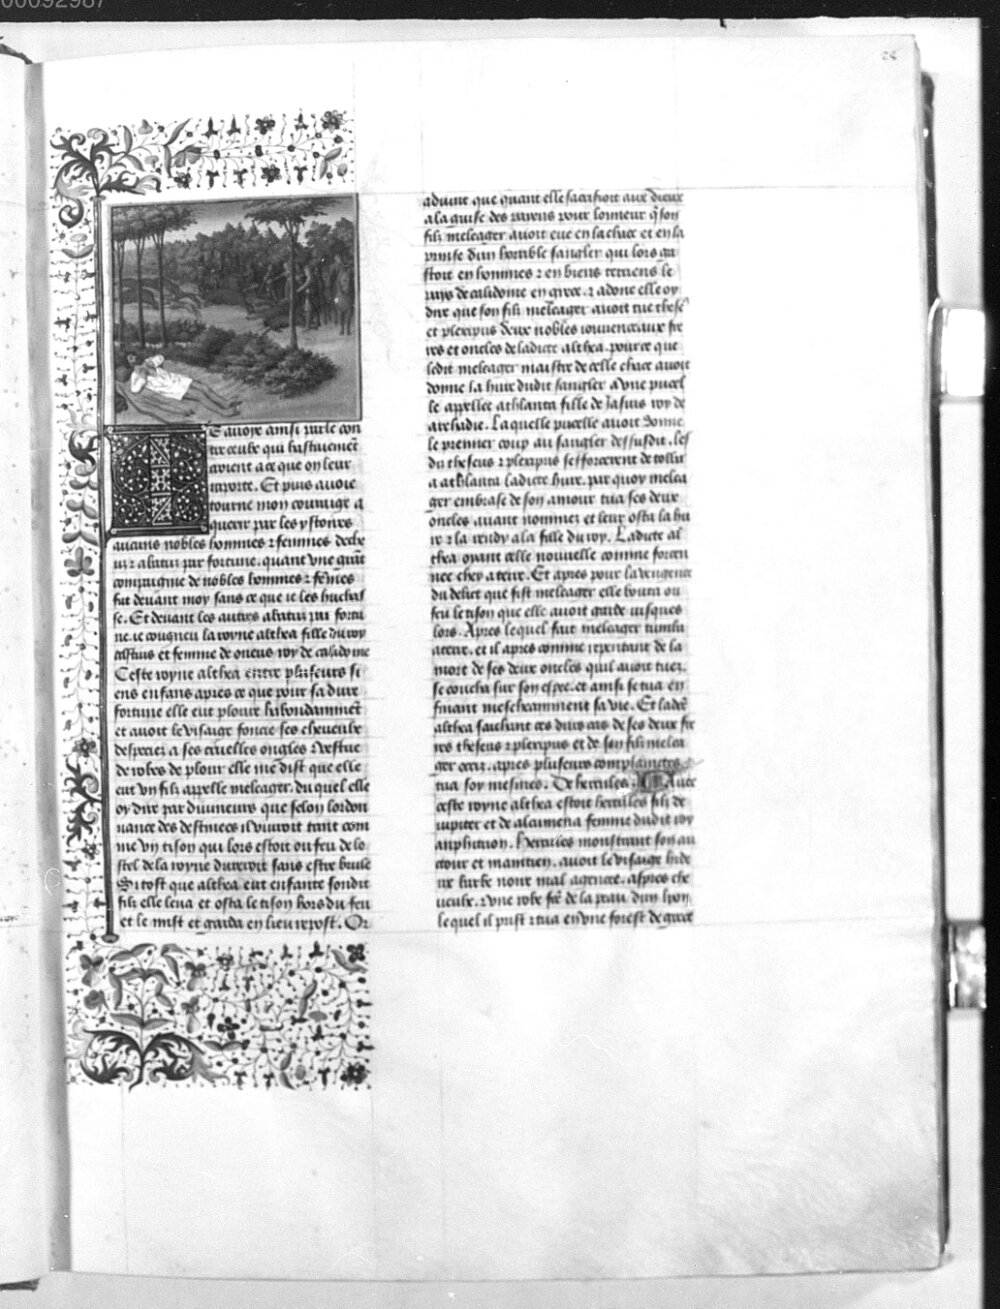 00092987
28
Jauoye ainsi parle con
tre ceulx qui hastiuement
auoient a ce que on leur
raporte. Et puis auoie
tourne mon couraige a
querir par les ystoires
aucuns nobles hommes ⁊ femmes deche
uz ⁊ abatuz par fortune. quant vne grāt
compaignie de nobles hommes ⁊ fēmes
fut deuant moy sans ce que ie les huchas
se. Et deuant les autres abatuz par fortu
ne. ie congneu la royne althea fille du roy
et femme de oneus roy de calidoine
Ceste royne althea entre plusieurs si
ens enfans apres ce que pour sa dure
fortune elle eut ploure habondammēt
et auoit le visaige foncie ses cheueulx
despeciez a ses cruelles ongles ⁊ vestue
de robes de plour elle me dist que elle
eut vn filz appelle meleager. du quel elle
oy dire par diuineurs que selon lordon
nance des destinees il viuroit tant com
me vn tison qui lors estoit ou feu de lo
stel de la royne dureroit sans estre brule
Si tost que althea eut enfante sondit
filz elle leua et osta le tison hors du feu
et le mist et garda en lieu repost. Or
aduint que quant elle sacrifioit aux dieux
a la guise des paiens pour lonneur q̄ son
filz meleager auoit eue en la chace et en la
prinse dun horrible sanglier qui lors ga
stoit en hommes ⁊ en biens terriens le
pays de calidoine en grece. ⁊ adone elle oy
dire que son filz meleager auoit tue these
et plexipus deux nobles iouuenceaux fre
res et oncles de ladicte althea. pource que
ledit meleager maistre de celle chace auoit
donne la hure dudit sanglier a vne pucel
le appellee athlanta fille de Jasius roy de
archadie. Laquelle pucelle auoit donne
le premier coup au sanglier dessusdit. lesdis
theseus ⁊ plexipus sefforcerent de tollir
a athlanta ladicte hure. par quoy melea
ger embrase de son amour tua ses deux
oncles auant nommez et leur osta la hu
re ⁊ la rendy a la fille du roy. Ladicte al
thea oyant celle nouuelle comme forcen
nee chey a terre. Et apres pour la vengence
du delict que fist meleager elle bouta ou
feu le tison que elle auoit garde iusques
lors. Apres lequel fait meleager tumba
a terre. et il apres comme repentant de la
mort de ses deux oncles quil auoit tuez.
se coucha sur son espee. et ainsi se tua en
finant meschamment sa vie. Et ladc̄e
althea saichant ces durs cas de ses deux fre
res theseus ⁊ plexipus et de son filz melea
ger occiz. apres plusieurs complainctes
tua soy mesmes. De hercules. Auec
ceste royne althea estoit hercules filz de
iupiter et de alcumena femme dudit roy
amphitrion. Hercules monstrant son au
ctour et maintien. auoit le visaige hide
ux barbe noire mal agencee. aspres che
ueulx. ⁊ vne robe fc̄e de la peau dun lyon
lequel il prist ⁊ tua en vne forest de grece